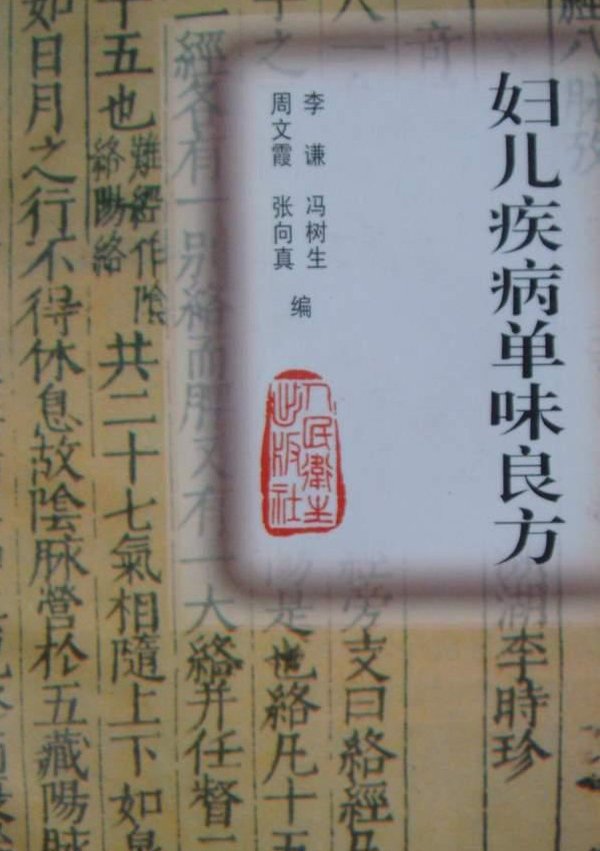 妇儿疾病单味良方
李谦 冯树生
周文霞 张向真
编
人民衛生
出版社
李時珍
旁支曰絡經
是也絡凡十五
一經各有一别絡而脾又有一大絡并任督二
十五也
難經作陰
絡陽絡
共二十七氣相隨上下如泉
如日月之行不得休息故陰脉營於五藏陽脉